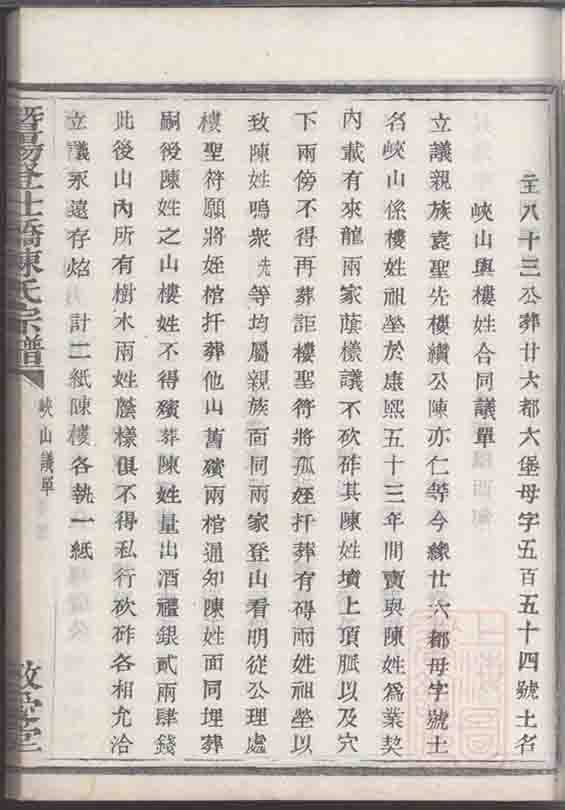 主八十三公葬廿六都六堡母字五百五十四號土名
峽山與樓姓合同議單
立議親族袁聖先樓纘公陳亦仁等今緣廿六都母字號土
名峽山係樓姓祖塋於康熙五十三年間賣與陳姓為業契
內載有來龍兩家蔭樣議不砍斫其陳姓墳上頂脈以及穴
下兩傍不得再葬詎樓聖符將孤姪扦葬有碍兩姓祖塋以
致陳姓鳴衆先等均屬親族面同兩家登山看明從公理處
樓聖符願將姪棺扦葬他山舊殯兩棺通知陳姓面同埋葬
嗣後陳姓之山樓姓不得殯葬陳姓量出酒禮銀貳兩肆錢
此後山內所有樹木兩姓蔭樣俱不得私行砍斫各相允洽
立議永遠存炤　計二紙陳樓各執一紙
暨陽登仕橋陳氏宗譜
峽山議單